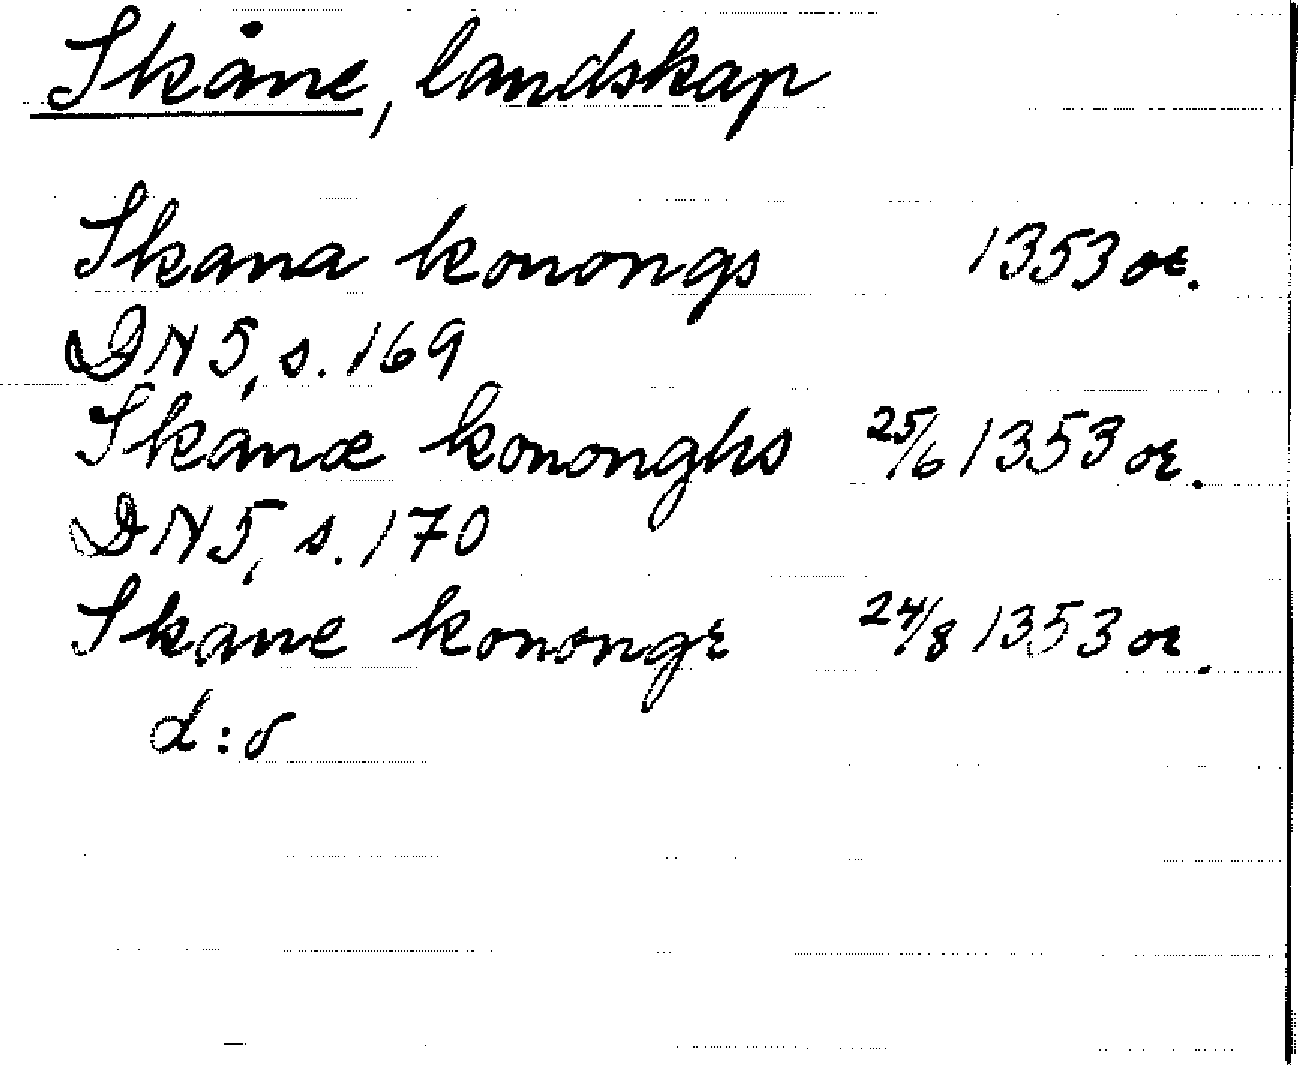 Skåne, landskap
Skana konongs 1353 or.
DN 5, s. 169
Skanæ kononghs 25/6 1353 or.
DN 5, s. 170
Skane konongx 24/8 1353 or.
d:o